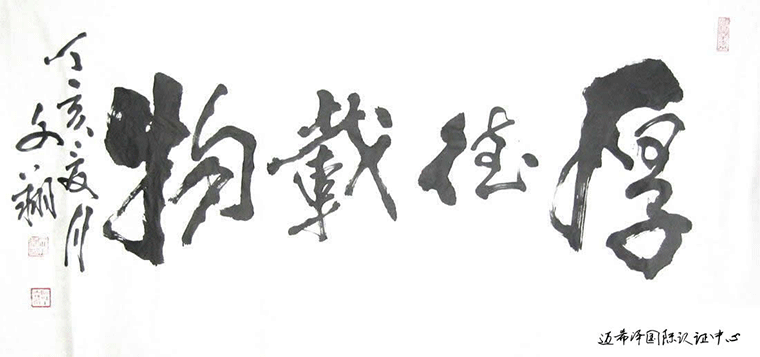 厚德載物
丁亥夏月
文翔
迈希泽国际认证中心